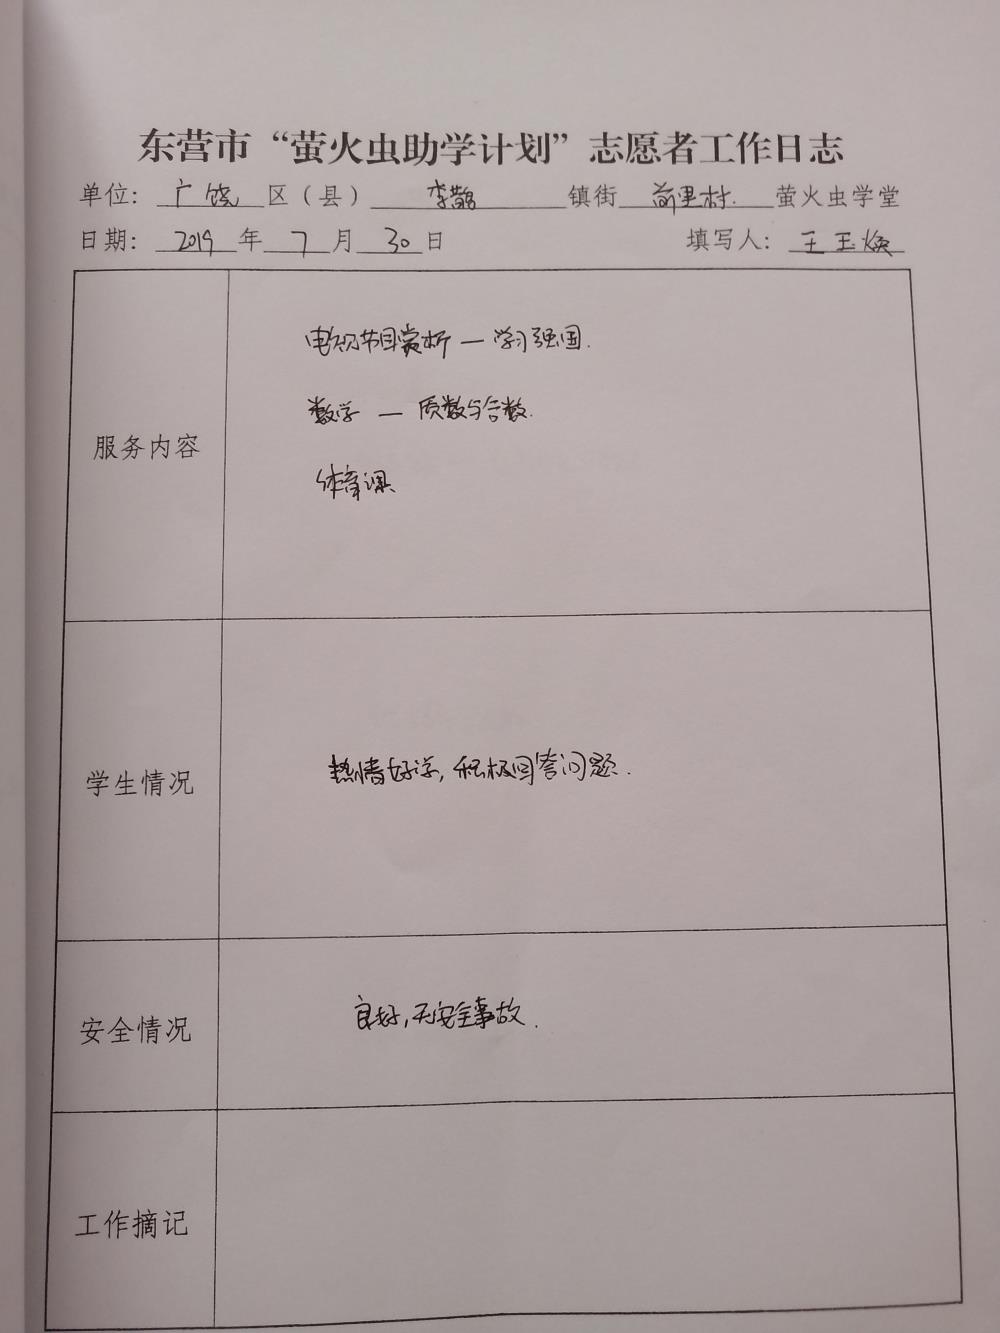 东营市“萤火虫助学计划”志愿者工作日志
单位：广饶区（县）李鹊镇街前里村.萤火虫学堂
日期：2019年7月30日 填写人：王玉焕
服务内容
电视节目赏析—学习强国.
数学—质数与合数.
体育课
学生情况
热情好学,积极回答问题.
安全情况
良好,无安全事故.
工作摘记